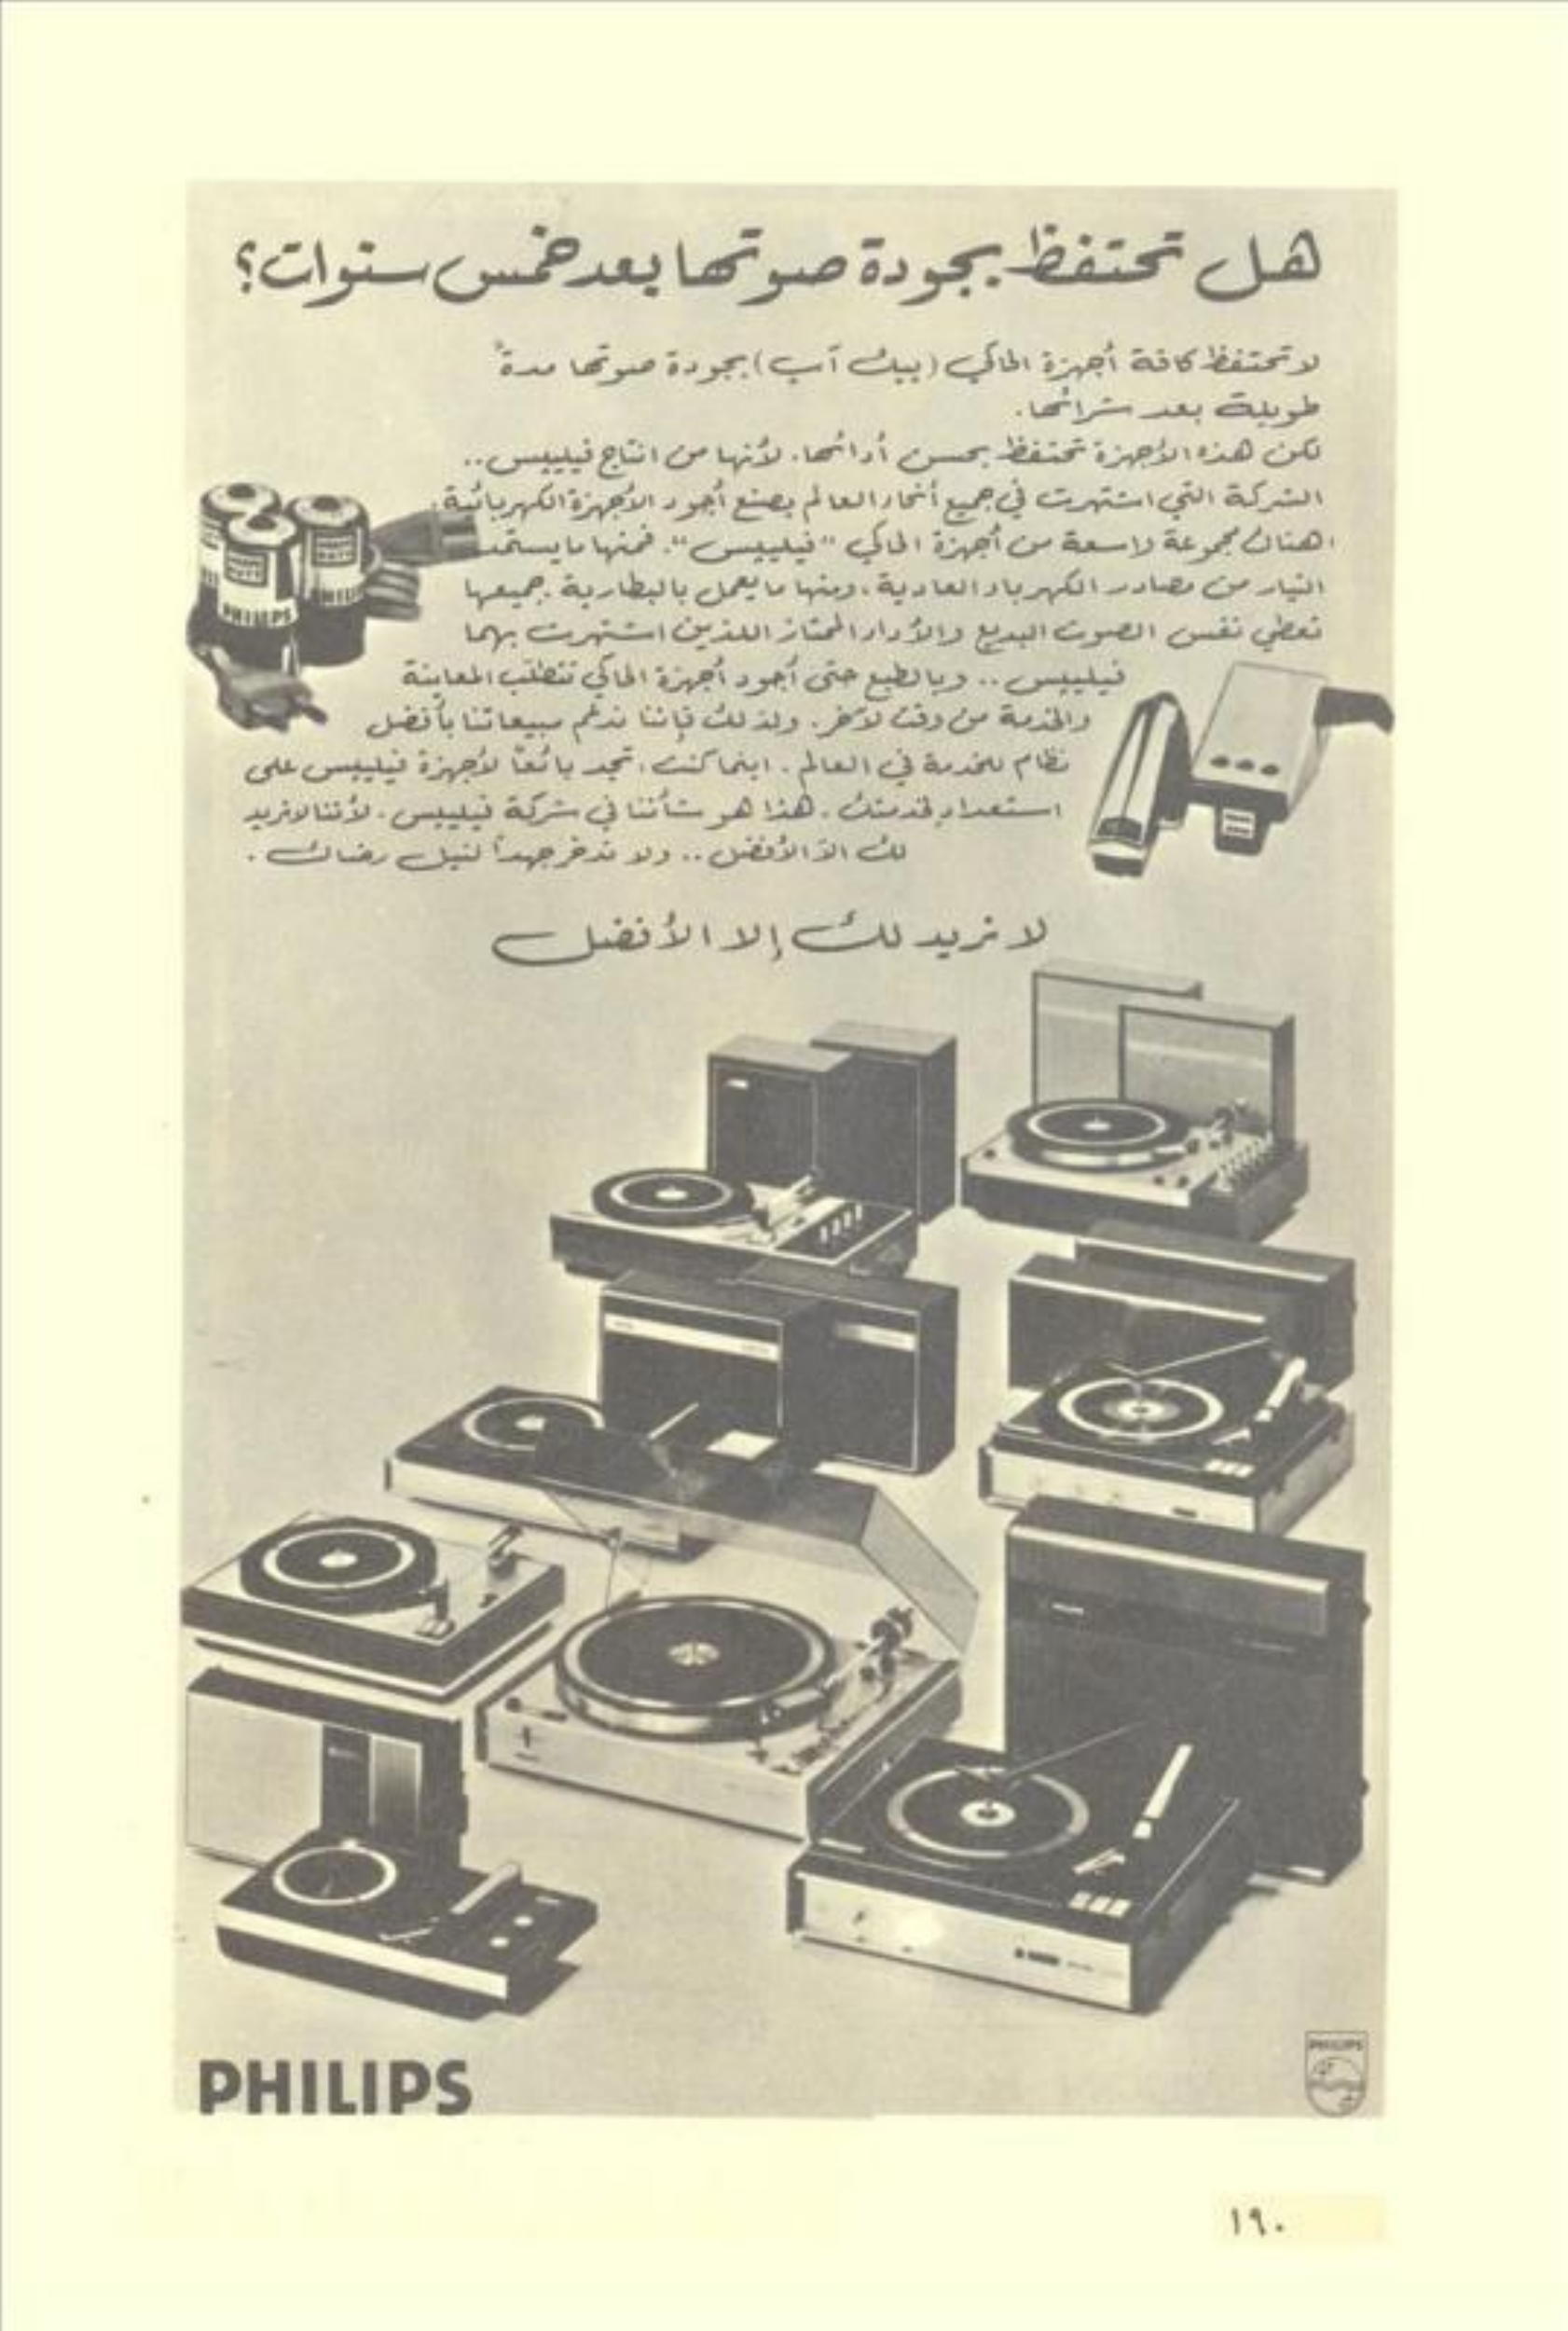 هل تحتفظ بجودة صوتها بعد خمس سنوات؟
لا تحتفظ كافة أجهزة الحاكي (بيك آب) بجودة صوتها مدةً
طويلة بعد شرائها.
لكن هذه الأجهزة تحتفظ بحسن أدائها. لأنها من انتاج فيليبس..
الشركة التي اشتهرت في جميع أنحاء العالم بصنع أجود الأجهزة الكهربائية.
هناك مجموعة واسعة من أجهزة الحاكي "فيليبس". فمنها ما يستمد
التيار من مصادر الكهرباء العادية، ومنها ما يعمل بالبطارية. جميعها
تعطي نفس الصوت البديع والأداء الممتاز اللذين اشتهرت بهما
فيليبس .. وبالطبع حتى أجود أجهزة الحاكي تتطلب المعاينة
والخدمة من وقت لآخر. ولذلك فإننا ندعم مبيعاتنا بأفضل
نظام للخدمة في العالم. اينما كنت، تجد بائعاً لأجهزة فيليبس على
استعداد لخدمتك. هذا هو شأننا في شركة فيليبس. لأننا لا نريد
لك الاّ الأفضل .. ولا ندخر جهداً لنيل رضاك.
لا نريد لك إلا الأفضل
PHILIPS
PHILIPS
PHILIPS
١٩٠